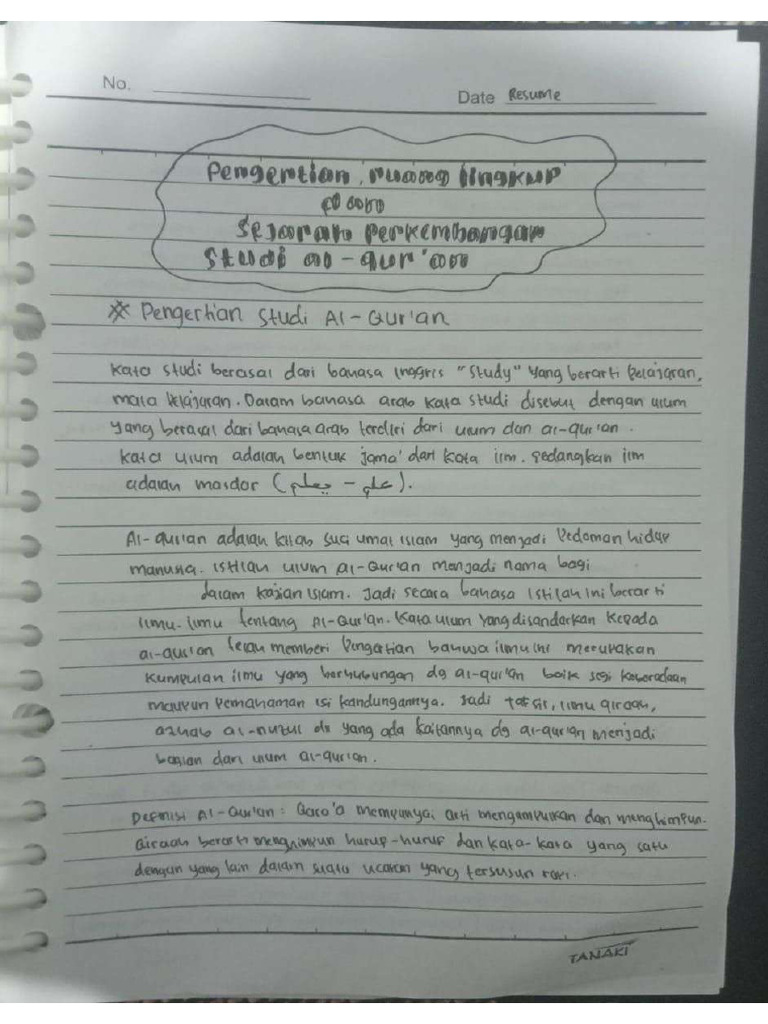 No.
Date Resume
Pengertian, ruang lingkup
dan
Sejarah Perkembangan
Studi al-qur'an
* Pengertian Studi Al-Qur'an
Kata studi berasal dari bahasa Inggris "Study" yang berarti Pelajaran,
mata Pelajaran. Dalam bahasa arab Kata studi disebut dengan ulum
yang berasal dari bahasa arab terdiri dari ulum dan al-qur'an.
Kata ulum adalah bentuk jama' dari kata ilm. Sedangkan ilm
adalah masdor (علم - يعلم).
Al-qur'an adalah kitab suci umat islam yang menjadi Pedoman hidup
manusia. istilah ulum Al-Qur'an menjadi nama bagi
dalam kajian islam. Jadi secara bahasa istilah ini berarti
ilmu-ilmu tentang Al-Qur'an. Kata ulum yang disandarkan kepada
al-qur'an telah memberi Pengertian bahwa ilmu ini merupakan
kumpulan ilmu yang berhubungan dg al-qur'an baik segi keberadaan
maupun Pemahaman isi kandungannya. Jadi tafsir, ilmu qiraah,
azbab al-nuzul dr yang ada kaitannya dg al-qur'an menjadi
bagian dari ulum al-qur'an.
Definisi Al-Qur'an : Qara'a mempunyai arti mengumpulkan dan menghimpun.
Qiraah berarti menghimpun huruf-huruf dan kata-kata yang satu
dengan yang lain dalam suatu ucapan yang tersusun rapi.
TANAKI